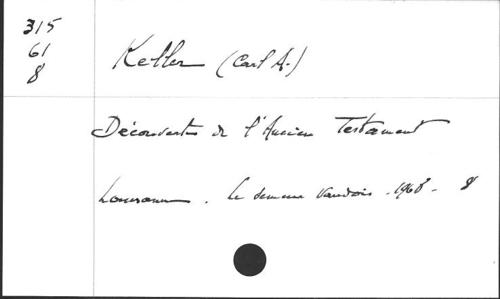 315
61
8
Keller (Carl A.)
Découverte de l'Ancien Testament
Lausanne. Le semeur vaudois. 1968. 8